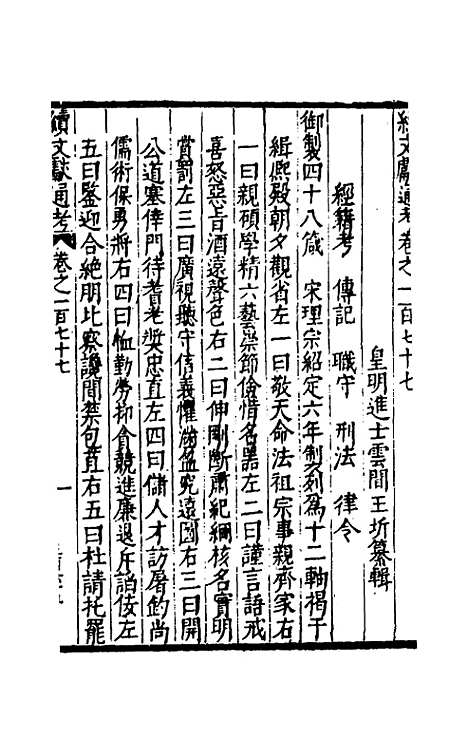 續文獻通考卷之一百七十七
皇明進士雲間王圻纂輯
經籍考 傳記 職守 刑法 律令
御製四十八箴 宋理宗紹定六年製列爲十二軸揭于
緝熙殿朝夕觀省左一曰敬天命法祖宗事親齊家右
一曰親碩學精六藝崇節儉惜名器左二曰謹言語戒
喜怒惡旨酒遠聲色右二曰伸剛斷肅紀綱核名實明
賞罰左三曰廣視聽守信義懼滿盈究遠圖右三曰開
公道塞倖門待耆老奬忠直左四曰儲人才訪屠釣尚
儒術保勇將右四曰恤勤勞抑貪競進廉退斥諂佞左
五曰鑒迎合絶朋比察讒間禁句直右五曰杜請托罷
續文獻通考 卷之一百七十七 一